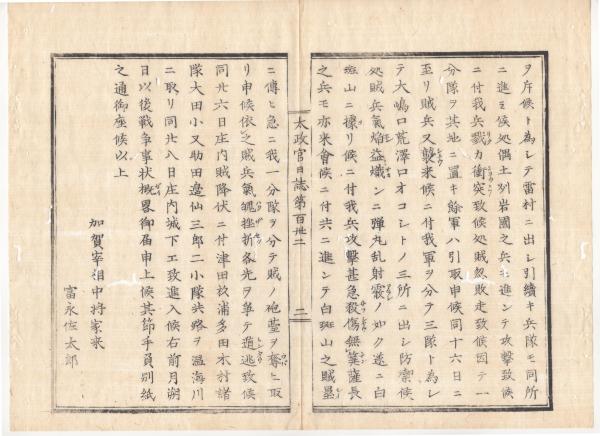 ヲ斥候ト為シテ雷村ニ出シ引續キ兵隊モ同所
ニ進ミ候処偶土刕岩國之兵モ進ンテ攻撃致候
ニ付我兵戮力衝突致候処賊忽敗走致候因テ一
分隊ヲ其地ニ置キ餘軍ハ引取申候同十六日ニ
至リ賊兵又襲来候ニ付我軍ヲ分テ三隊ト為シ
テ大嶋口荒澤口オコシトノ三所ニ出シ防禦候
処賊兵氣焔益熾ンニ弾丸乱射霰ノ如ク遂ニ白
斑山ニ據リ候ニ付我兵攻撃甚急殺傷無算薩長
之兵モ亦来會候ニ付共ニ進ンテ白斑山之賊壘
太政官日誌第百卅二
二
ニ傳ヒ急ニ我一分隊ヲ分テ賊ノ砲䑓ヲ奪ヒ取
リ申候依之賊兵氣魄挫折各光ヲ革テ遁逃致候
同廾六日庄内賊降伏ニ付津田玖浦多田木村諸
隊大田小又助田邉仙三郎二小隊共路ヲ温海川
ニ取リ同廾八日庄内城下エ致進入候右前月朔
日以後戦争事状概畧御届申上候其節手負別紙
之通御座候以上
加賀宰相中将家来
富永佐太郎